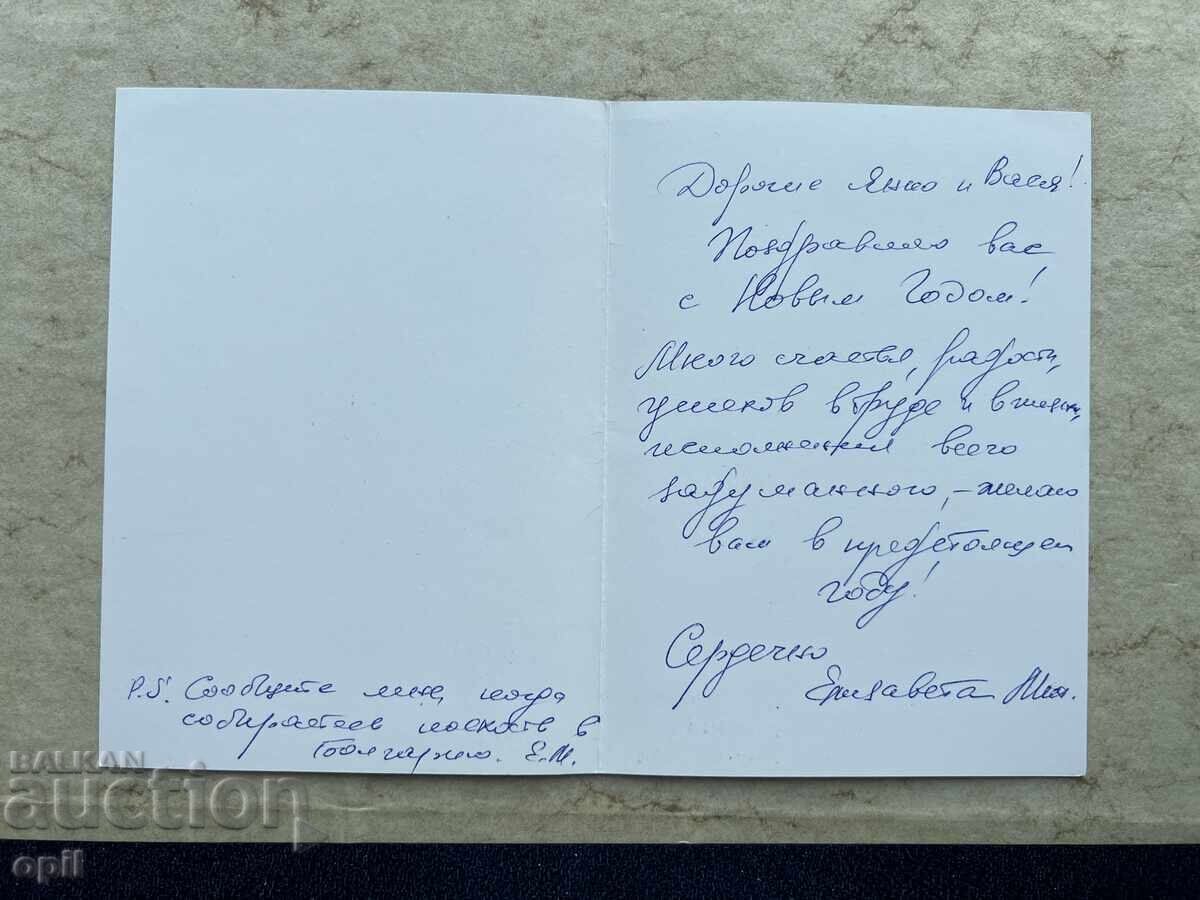 Дорогие Янко и Вася!
Поздравляю вас
с Новым Годом!
Много счастья, радости,
успехов в труде и в жизни,
исполнения всего
задуманного, – желаю
вам в предстоящем
году!
Сердечно
Елизавета
P.S. Сообщите мне, когда
собираетесь поехать в
Болгарию. Е.М.
BALKAN
auction
opil